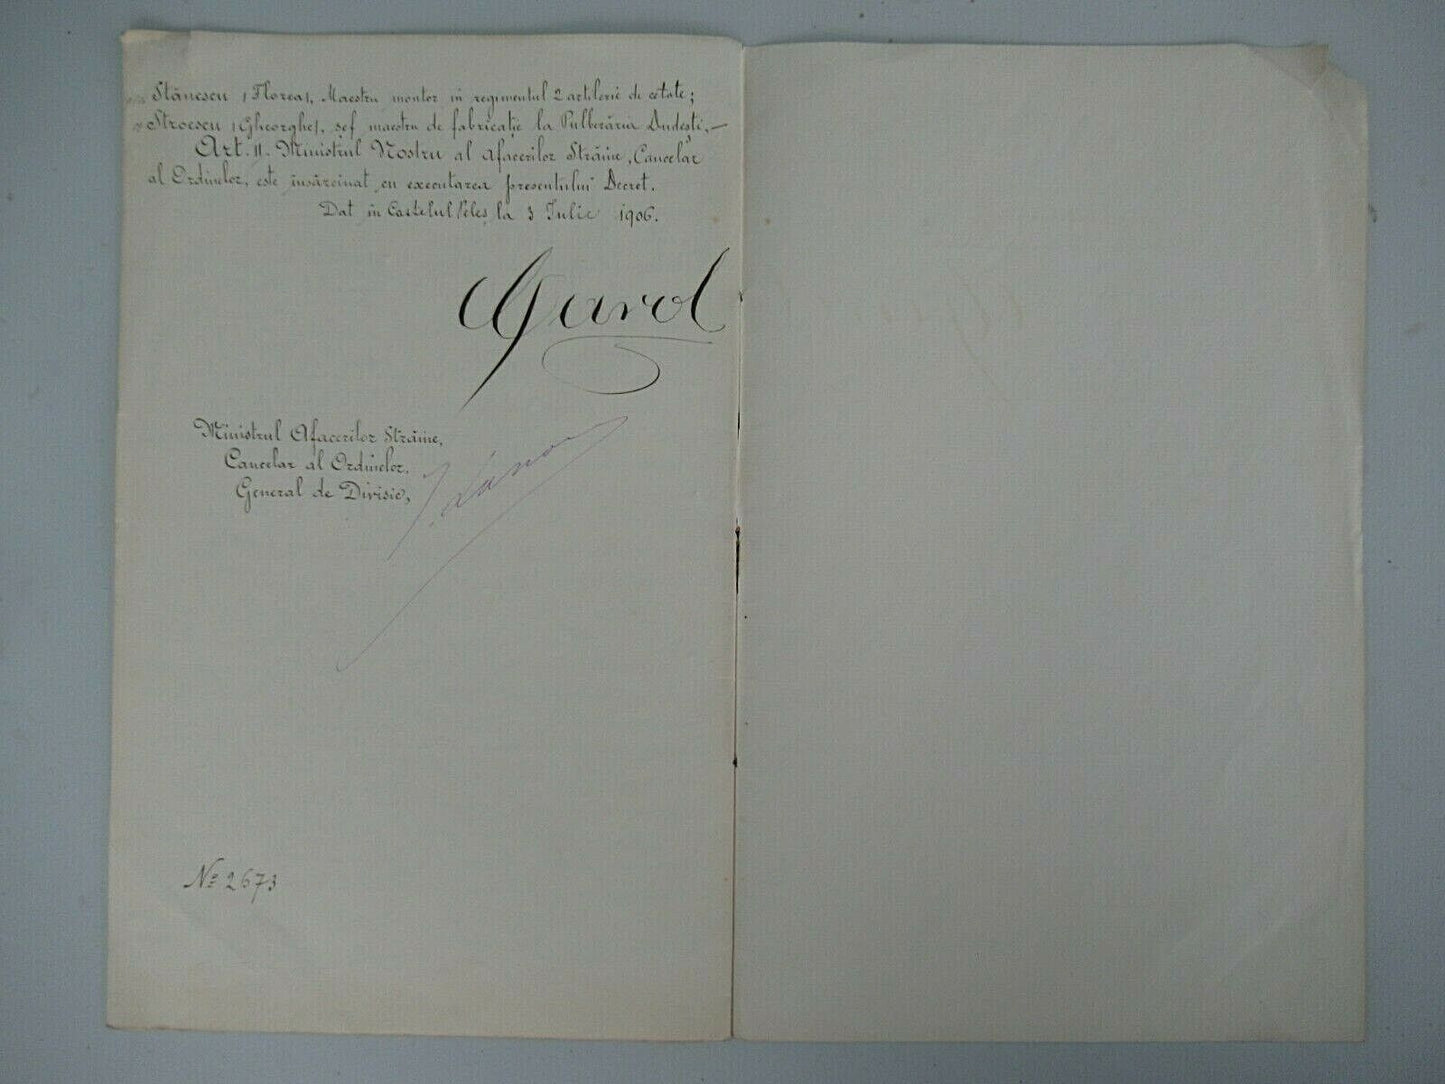 Stănescu (Florea), Maestru montor in regimentul 2 artilerie de cetate;
Stroescu (Gheorghe), șef maestru de fabricație la Pulberăria Dudești.—
Art. II. Ministrul Nostru al Afacerilor Străine, Cancelar
al Ordinelor, este însărcinat cu executarea presentului Decret.
Dat in Castelul Peleș la 3 Iulie 1906.
Carol
Ministrul Afacerilor Străine,
Cancelar al Ordinelor.
General de Divisie,
No 2673